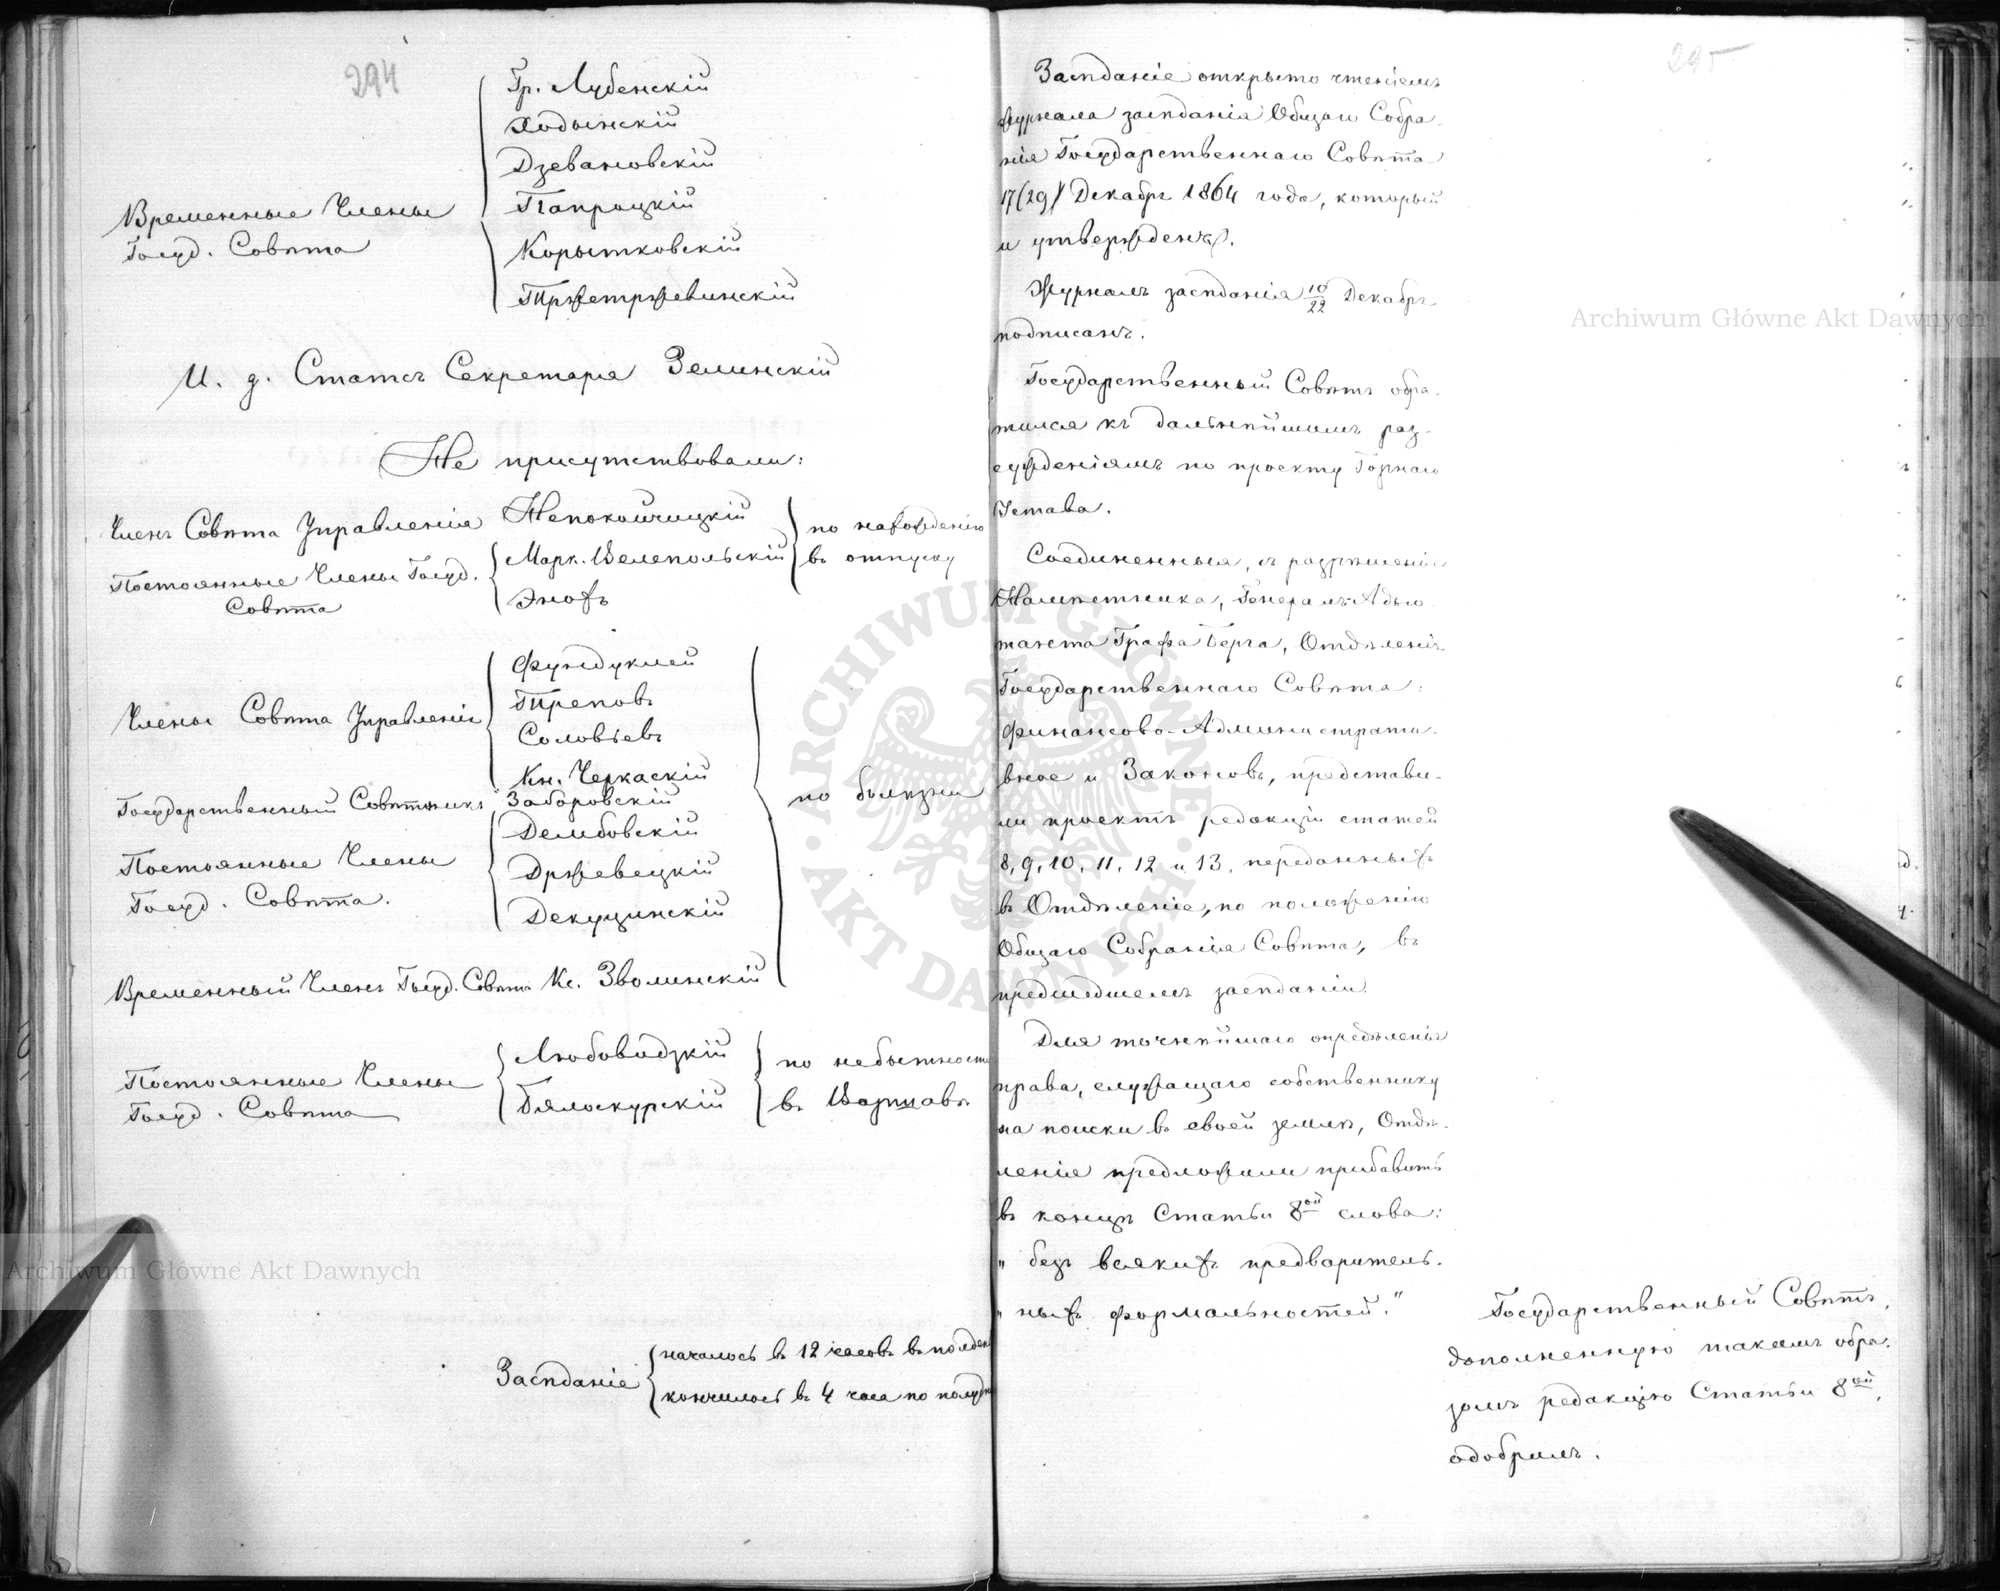 294
Гр. Лубенскій
Ходынскій
Дзевановскій
Папроцкій
Корытковскій
Пржетржевинскій
Временные Члены
Госуд. Совѣта
И. д. Статсъ Секретаря Зелинскій
Не присутствовали:
Членъ Совѣта Управленія Непокойчицкій
Постоянные Члены Госуд.
Совѣта
Марк. Велепольскій
Энохъ
по нахожденію
въ отпуску
Члены Совѣта Управленія
Фундуклей
Треповъ
Соловьевъ
Кн. Черкаскій
Государственный Совѣтникъ Заборовскій
Постоянные Члены
Госуд. Совѣта.
Дембовскій
Држевецкій
Декуцинскій
Временный Членъ Госуд. Совѣта Кс. Зволинскій
по болѣзни
Постоянные Члены
Госуд. Совѣта
Любовидзкій
Бялоскурскій
по небытности
въ Варшавѣ
Засѣданіе
началось въ 12 часовъ въ полдень
кончилось въ 4 часа по полудни
295
Засѣданіе открыто чтеніемъ
журнала засѣданія Общаго Собра-
нія Государственнаго Совѣта
17(29) Декабря 1864 года, который
и утвержденъ.
Журналъ засѣданія 10/22 Декабря
подписанъ.
Государственный Совѣтъ обра-
тился къ дальнѣйшимъ раз-
сужденіямъ по проекту Горнаго
Устава.
Соединенныя, съ разрѣшенія
Намѣстника, Генералъ-Адъю-
танта Графа Берга, Отдѣленія
Государственнаго Совѣта:
Финансово-Администрати-
вное и Законовъ, представи-
ли проектъ редакціи статей
8, 9, 10, 11, 12 и 13, переданныхъ
въ Отдѣленіе, по положенію
Общаго Собранія Совѣта, въ
предшедшемъ засѣданіи.
Для точнѣйшаго опредѣленія
права, служащаго собственнику
на поиски въ своей землѣ, Отдѣ-
ленія предложили прибавить
въ концѣ Статьи 8ой слова:
„ безъ всякихъ предваритель-
„ ныхъ формальностей."
Государственный Совѣтъ,
дополненную такимъ обра-
зомъ редакцію Статьи 8ой,
одобрилъ.
Archiwum Główne Akt Dawnych
Archiwum Główne Akt Dawnych
ARCHIWUM GŁÓWNE · AKT DAWNYCH ·